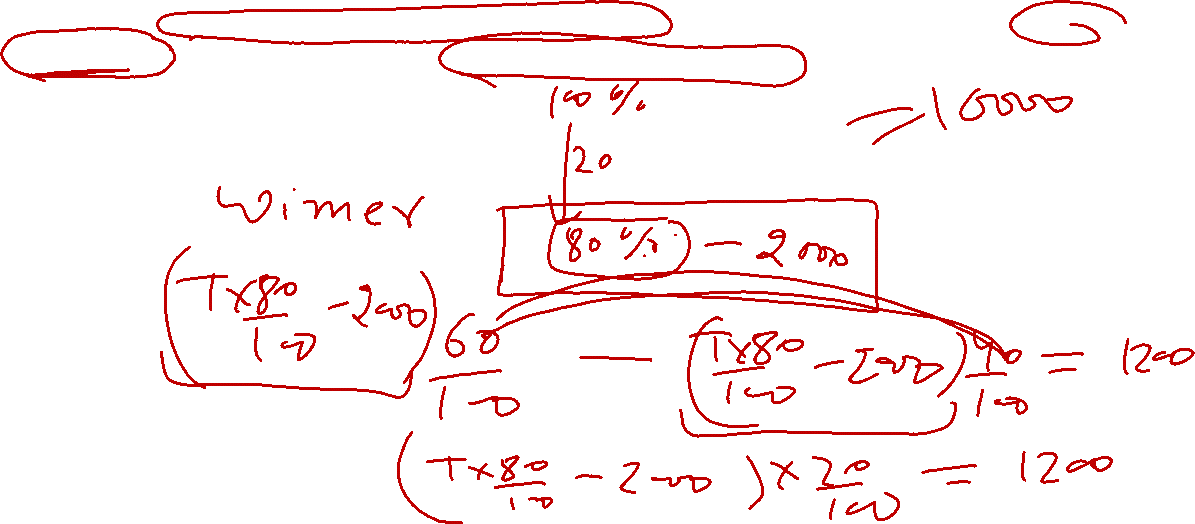 100 %
= 10000
20
Winner
80 % - 2000
(T×80/100 - 2000) 60/100 - (T×80/100 - 2000) 40/100 = 1200
(T×80/100 - 2000) × 20/100 = 1200